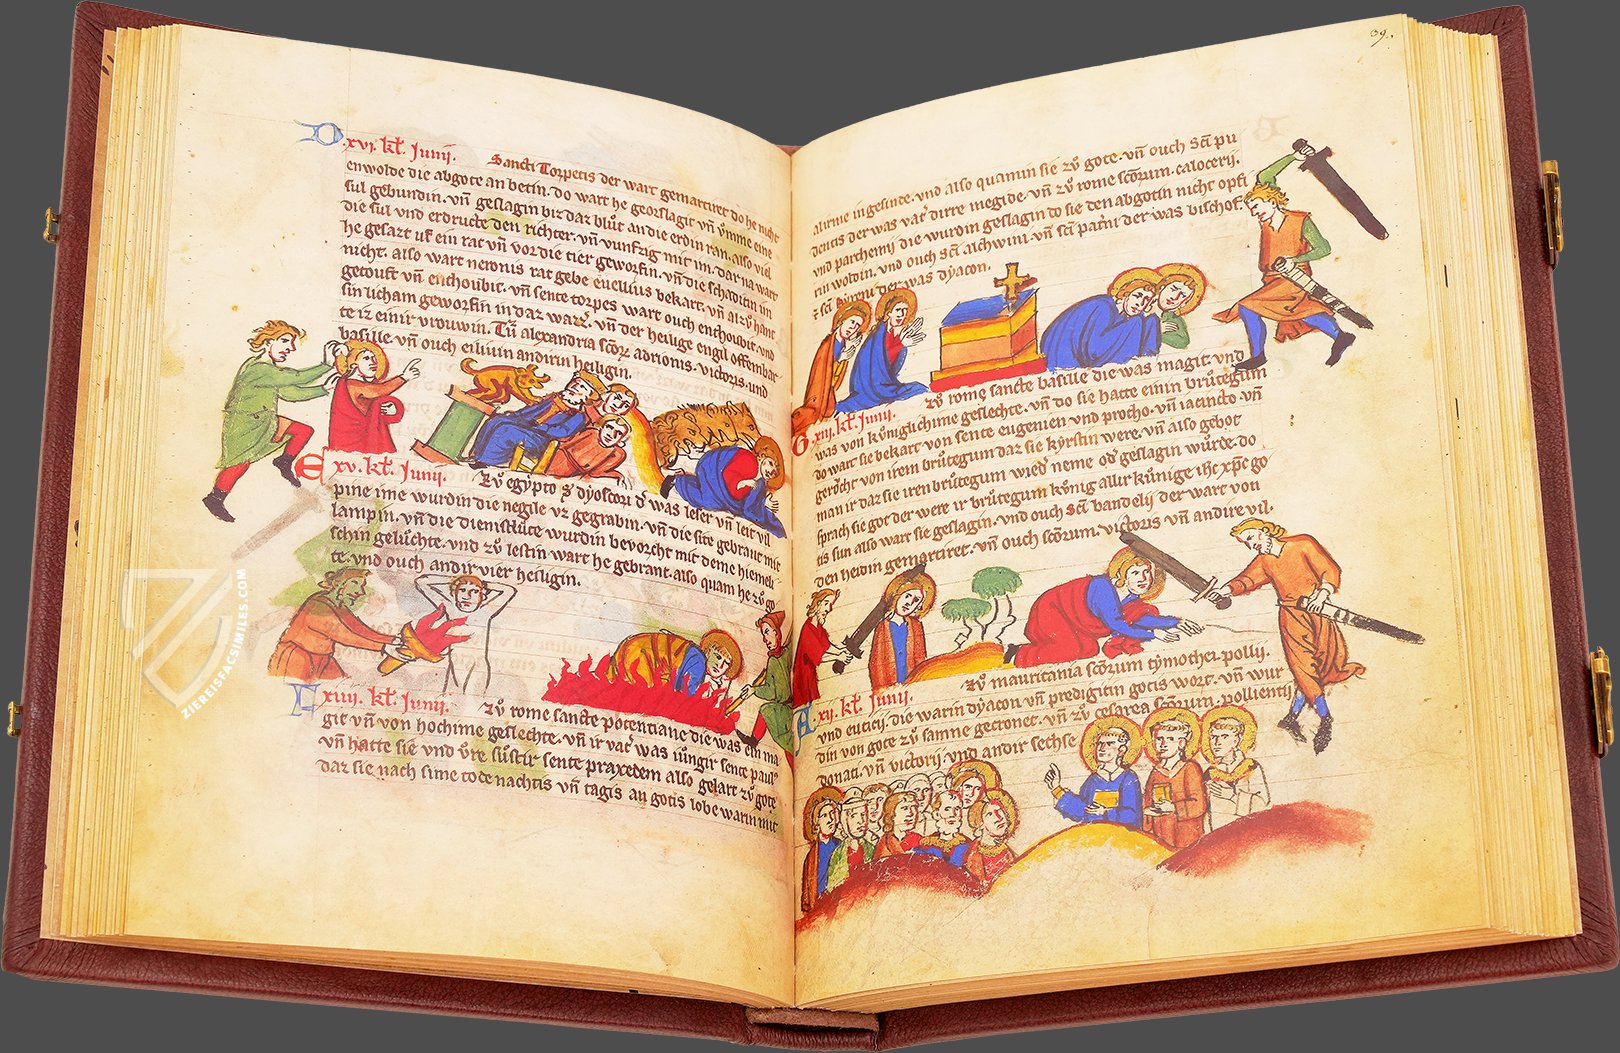 D .xvj. kł. Junij. Sancti Torpetis der wart gemartiret do he nicht
enwolde die abgote an betin. do wart he georslagit vn̄ vmme eine
sul gebundin. vn̄ geslagin biz daz blůt an die erdin ran. also viel
die sul vnd erdructe den richter. vn̄ vunfzig mit im. dar na wart
he gesazt uf ein rat vn̄ vor die tier geworfin. vn̄ die schaditin im
nicht. also wart neronis rat gebe euellius bekart. vn̄ alzů hant
getouft vn̄ enthoubit. vn̄ sente torpes wart ouch enthoubit. vnd
sin licham geworfin in daz wazz̄. vn̄ der heilige engil offenbar
te iz einir vrouwin. Zů alexandria scōꝝ adrionis. victoris. vnd
basille. vn̄ ouch eiliuin andirin heiligin.
E xv. kł. Junij. Zů egypto s̄ dyoscori d̄ was leser vn̄ leit vil
pine ime wurdin die negile vz gegrabin. vn̄ die site gebrant mit
lampin. vn̄ die dienistlůte wurdin bevorcht mit deme hiemeli
schin gelůchte. vnd zů lestin wart he gebrant. also quam he zů go
te. vnd ouch andir vier heiligin.
F xiiij. kł. Junij. Zů rome sancte potentiane die was ein ma
git vn̄ von hochime geslechte. vn̄ ir vat̄ was iůngir sente pauls
vn̄ hatte sie vnd v̄re sůstir sente praxedem also gelart zů gote
daz sie nach sime tode nachtis vn̄ tagis an gotis lobe warin mit
39.
alirme ingesinde. vnd also quamin sie zů gote. vn̄ ouch scī pu
dentis der was vat̄ dirre megide. vn̄ zů rome scōrum. calocerij.
vnd parthemij die wurdin geslagin do sie den abgotin nicht opfi
rin woldin. vnd ouch scī alchwini. vn̄ scī patni der was bischof.
z scī hireu der was dyacon.
G .xiij. kł. Junij. Zů rome sancte basille die was magit vnd
was von kůniglichime geslechte. vn̄ do sie hatte einin brůtegum
do wart sie bekart von sente eugenien vnd protho. vn̄ iacincto vn̄
gerůcht von irem brůtegum daz sie kyrstin were. vn̄ also gebot
man ir daz sie iren brůtegum wied̄ neme od̄ geslagin wůrde. do
sprach sie got der were ir brůtegum kůnig allir kůnige ihc xpc go
tis sun also wart sie geslagin. vnd ouch scī bandelij der wart von
den heidin gemartiret. vn̄ ouch scōrum. victoris vn̄ andire vil.
A .xij. kł. Junij. Zů mauritania scōrum tymothei. pollij.
vnd euticij. die warin dyacon vn̄ predigitin gotis wort. vn̄ wur
din von gote zů samne gecronet. vn̄ zů cesarea scōrum. pollientij
donati. vn̄ victorij. vnd andir sechse
ZIEREISFACSIMILES.COM